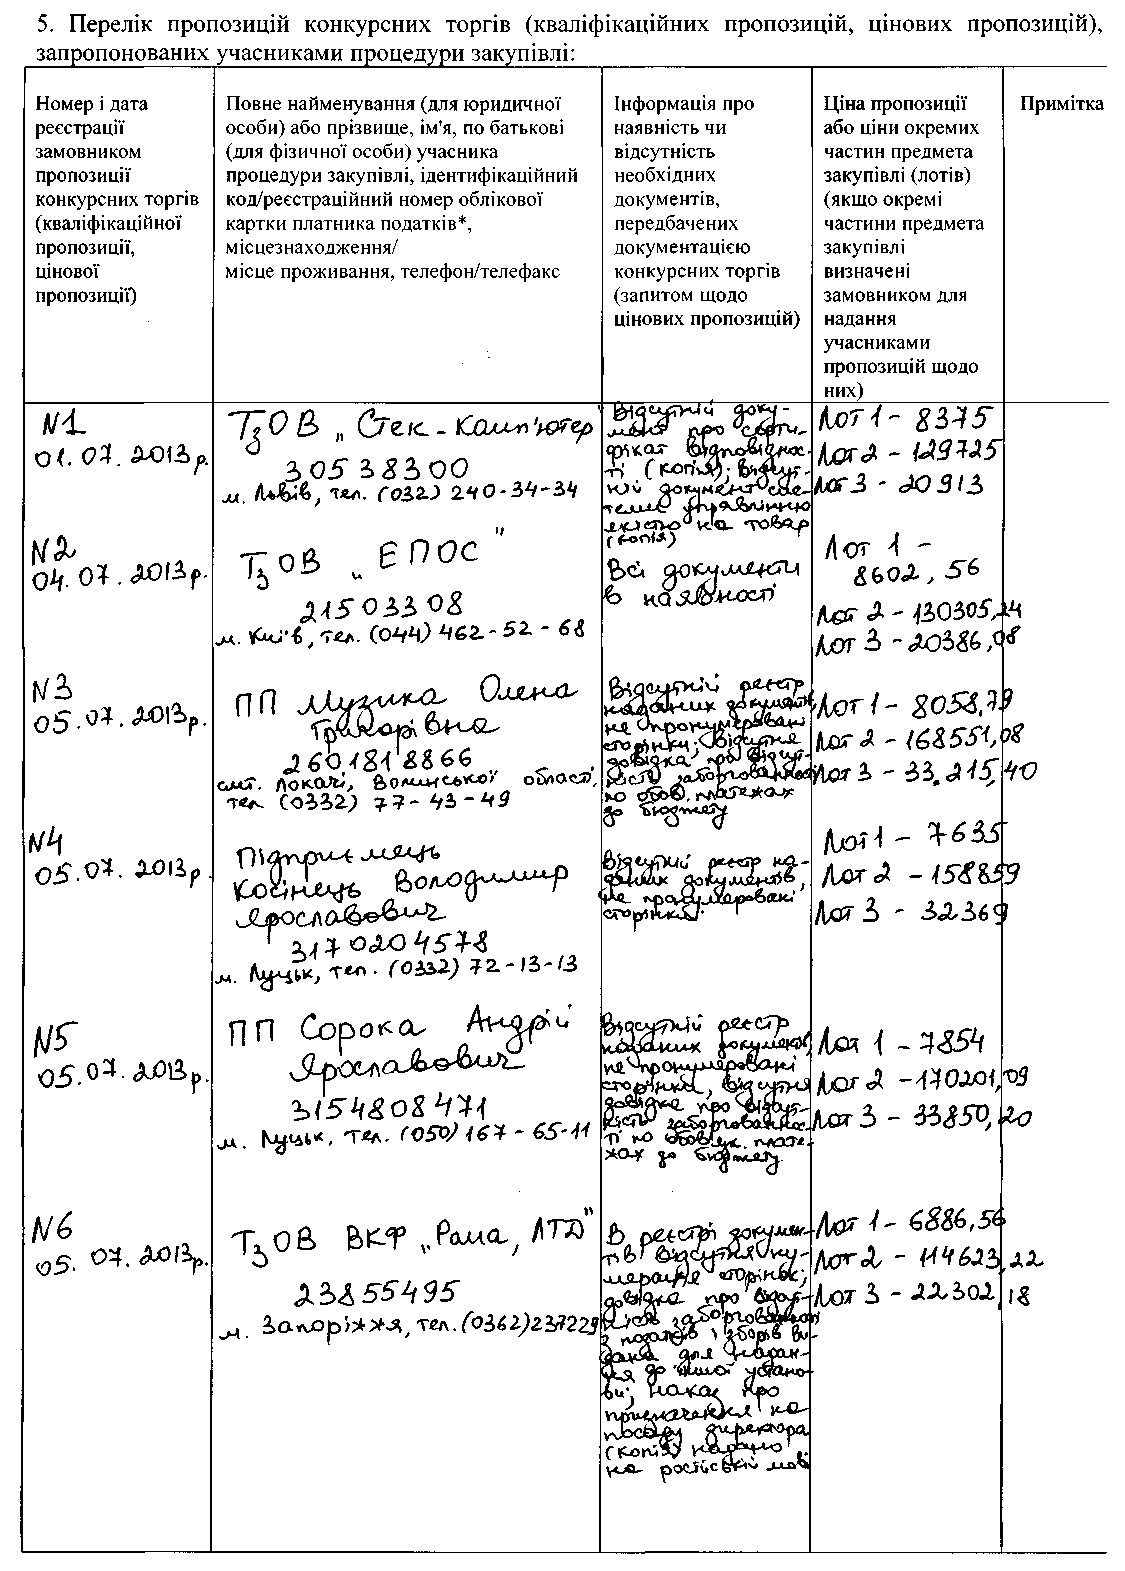 5. Перелік пропозицій конкурсних торгів (кваліфікаційних пропозицій, цінових пропозицій),
запропонованих учасниками процедури закупівлі:
Номер і дата
реєстрації
замовником
пропозиції
конкурсних торгів
(кваліфікаційної
пропозиції,
цінової
пропозиції)
Повне найменування (для юридичної
особи) або прізвище, ім'я, по батькові
(для фізичної особи) учасника
процедури закупівлі, ідентифікаційний
код/реєстраційний номер облікової
картки платника податків*,
місцезнаходження/
місце проживання, телефон/телефакс
Інформація про
наявність чи
відсутність
необхідних
документів,
передбачених
документацією
конкурсних торгів
(запитом щодо
цінових пропозицій)
Ціна пропозиції
або ціни окремих
частин предмета
закупівлі (лотів)
(якщо окремі
частини предмета
закупівлі
визначені
замовником для
надання
учасниками
пропозицій щодо
них)
Примітка
N1
01.07.2013р.
ТзОВ „Стек-Комп'ютер"
30538300
м. Львів, тел. (032) 240-34-34
Відсутній доку-
мент про серти-
фікат відповіднос-
ті (копія); відсут-
ній документ сис-
теми управління
якістю на товар
(копія)
Лот 1 - 8375
Лот 2 - 129725
Лот 3 - 20913
N2
04.07.2013р.
ТзОВ „ЕПОС"
21503308
м. Київ, тел. (044) 462-52-68
Всі документи
в наявності
Лот 1 -
8602,56
Лот 2 - 130305,24
Лот 3 - 20386,08
N3
05.07.2013р.
ПП Музика Олена
Григорівна
2601818866
смт. Локачі, Волинської області,
тел. (0332) 77-43-49
Відсутній реєстр
наданих документів,
не пронумеровані
сторінки; відсутня
довідка про відсут-
ність заборгованості
по обов. платежах
до бюджету
Лот 1 - 8058,79
Лот 2 - 168551,08
Лот 3 - 33.215,40
N4
05.07.2013р.
Підприємець
Косінець Володимир
Ярославович
3170204578
м. Луцьк, тел. (0332) 72-13-13
Відсутній реєстр на-
даних документів,
не пронумеровані
сторінки.
Лот 1 - 7635
Лот 2 - 158859
Лот 3 - 32369
N5
05.07.2013р.
ПП Сорока Андрій
Ярославович
3154808471
м. Луцьк, тел. (050) 167-65-11
Відсутній реєстр
наданих документів,
не пронумеровані
сторінки, відсутня
довідка про відсут-
ність заборгованос-
ті по обов'язк. плате-
жах до бюджету
Лот 1 - 7854
Лот 2 - 170201,09
Лот 3 - 33850,20
N6
05.07.2013р.
ТзОВ ВКФ „Рома, ЛТД"
23855495
м. Запоріжжя, тел. (0362)237229
В реєстрі докумен-
тів відсутня ну-
мерація сторінок;
довідка про відсут-
ність заборгованості
з податків і зборів ви-
дана для надан-
ня до іншої устано-
ви; наказ про
призначення на
посаду директора
(копія) надано
на російській мові
Лот 1 - 6886,56
Лот 2 - 114623,22
Лот 3 - 22302,18